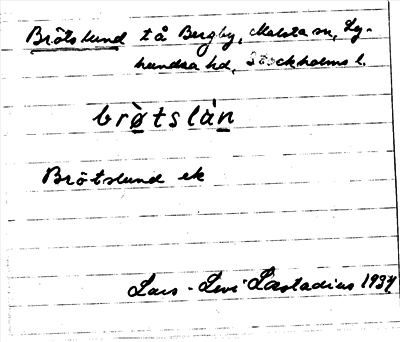 Brötslund t å Bergby, Malsta sn, Ly-
hundra hd, Stockholms l.
brø̀tslàn
Brötslund ek
Lars-Levi Læstadius 1937